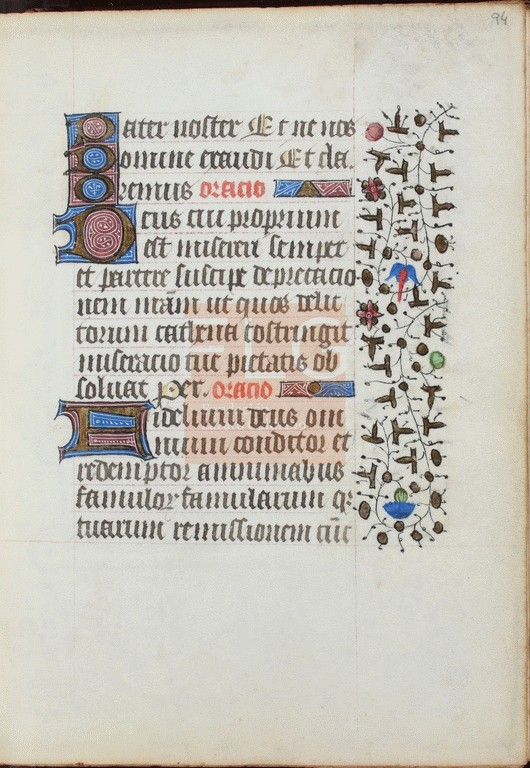 94
Pater noster Et ne nos
Domine exaudi Et cla.
Oremus oracio
Deus cui proprium
est misereri semper
et parcere suscipe deprecacio
nem nram ut quos delic
torum cathena costringit
miseracio tue pietatis ob
soluat Per. oracio
Fidelium deus om
nium conditor et
redemptor animabus
famulor famularum q
tuarum remissionem cūc